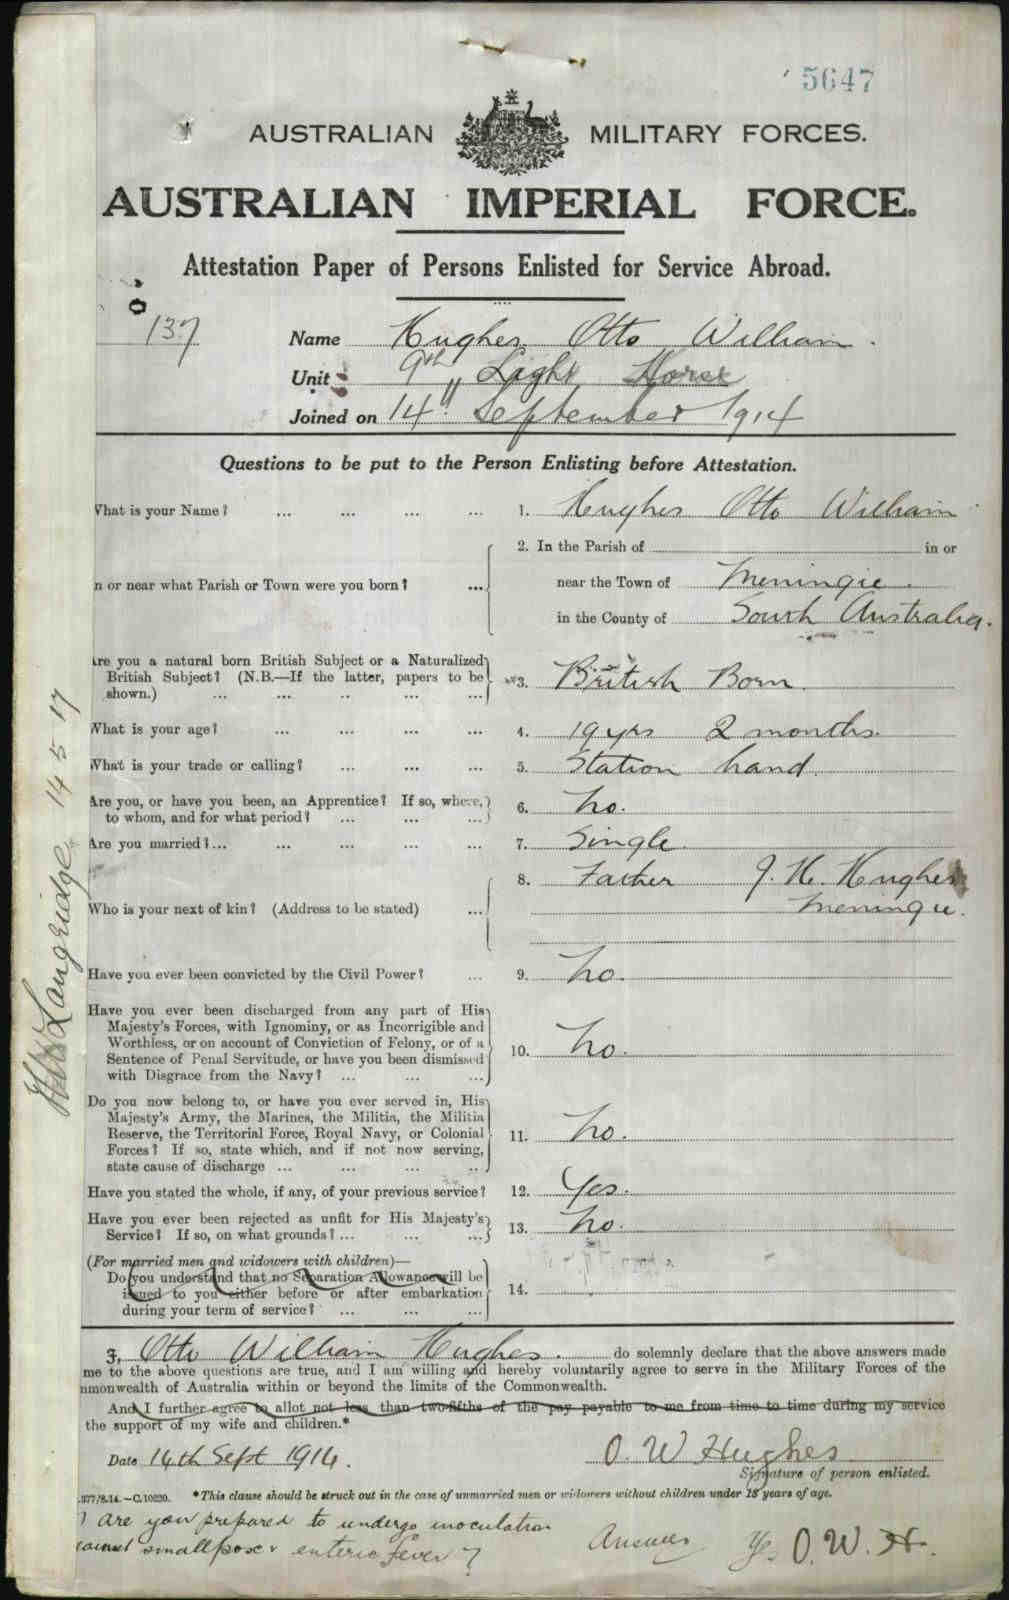 5647
AUSTRALIAN MILITARY FORCES.
AUSTRALIAN IMPERIAL FORCE.
Attestation Paper of Persons Enlisted for Service Abroad.
137
Name Hughes Otto William.
Unit 9th Light Horse
Joined on 14" September 1914
Questions to be put to the Person Enlisting before Attestation.
What is your Name? ... ... ... ... 1. Hughes Otto William
2. In the Parish of in or
n or near what Parish or Town were you born? ... near the Town of Meningie.
in the County of South Australia.
Are you a natural born British Subject or a Naturalized
British Subject? (N.B.—If the latter, papers to be 3. British Born.
shown.) ... ... ... ... ...
What is your age? ... ... ... ... 4. 19 yrs 2 months.
What is your trade or calling? ... ... ... 5. Station hand.
Are you, or have you been, an Apprentice? If so, where, 6. No.
to whom, and for what period? ... ... ...
Are you married?... ... ... ... ... 7. Single.
8. Father J. H. Hughes
Who is your next of kin? (Address to be stated) ... Meningie.
Have you ever been convicted by the Civil Power? ... 9. No.
Have you ever been discharged from any part of His
Majesty's Forces, with Ignominy, or as Incorrigible and
Worthless, or on account of Conviction of Felony, or of a 10. No.
Sentence of Penal Servitude, or have you been dismissed
with Disgrace from the Navy? ... ... ...
Do you now belong to, or have you ever served in, His
Majesty's Army, the Marines, the Militia, the Militia
Reserve, the Territorial Force, Royal Navy, or Colonial 11. No.
Forces? If so, state which, and if not now serving,
state cause of discharge ... ... ... ..
Have you stated the whole, if any, of your previous service? 12. Yes.
Have you ever been rejected as unfit for His Majesty's 13. No.
Service? If so, on what grounds?... ... ...
(For married men and widowers with children)—
Do you understand that no Separation Allowance will be
issued to you either before or after embarkation 14.
during your term of service? ... ... ...
I, Otto William Hughes. do solemnly declare that the above answers made
me to the above questions are true, and I am willing and hereby voluntarily agree to serve in the Military Forces of the
mmonwealth of Australia within or beyond the limits of the Commonwealth.
And I further agree to allot not less than two-fifths of the pay payable to me from time to time during my service
the support of my wife and children.*
Date 14th Sept 1914. O. W Hughes
Signature of person enlisted.
.377/8.14.—C.10230. *This clause should be struck out in the case of unmarried men or widowers without children under 18 years of age.
Are you prepared to undergo inoculation
against smallpox & enteric fever? Answer Yes O. W. H.
Langridge 14 5 17